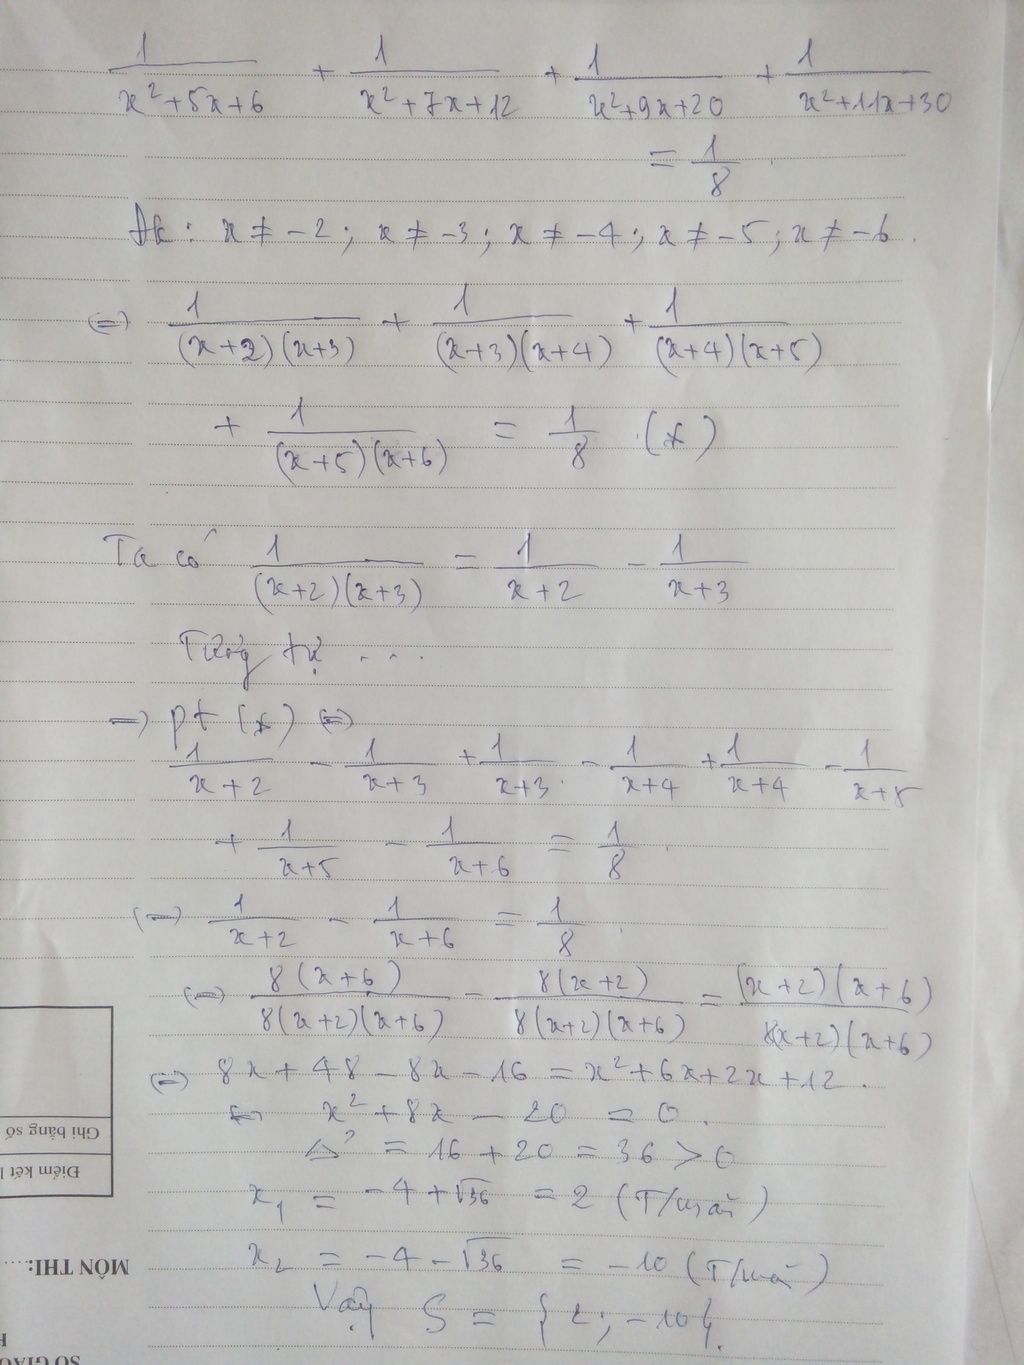 1/(x²+5x+6) + 1/(x²+7x+12) + 1/(x²+9x+20) + 1/(x²+11x+30)
= 1/8
Đk: x ≠ -2; x ≠ -3; x ≠ -4; x ≠ -5; x ≠ -6.
(=) 1/((x+2)(x+3)) + 1/((x+3)(x+4)) + 1/((x+4)(x+5))
+ 1/((x+5)(x+6)) = 1/8 (*)
Ta có 1/((x+2)(x+3)) = 1/(x+2) - 1/(x+3)
Tương tự ....
=) pt (*) (=)
1/(x+2) - 1/(x+3) + 1/(x+3) - 1/(x+4) + 1/(x+4) - 1/(x+5)
+ 1/(x+5) - 1/(x+6) = 1/8
(=) 1/(x+2) - 1/(x+6) = 1/8
(=) 8(x+6)/(8(x+2)(x+6)) - 8(x+2)/(8(x+2)(x+6)) = (x+2)(x+6)/(8(x+2)(x+6))
(=) 8x+48-8x-16 = x²+6x+2x+12.
(=) x²+8x-20 = 0.
Δ' = 16+20 = 36 > 0
x₁ = -4+√36 = 2 (T/mãn)
x₂ = -4-√36 = -10 (T/mãn)
Vậy S = {2; -10}.
Ghi bằng số
Điểm kết l
MÔN THI:....
SỞ GIÁO